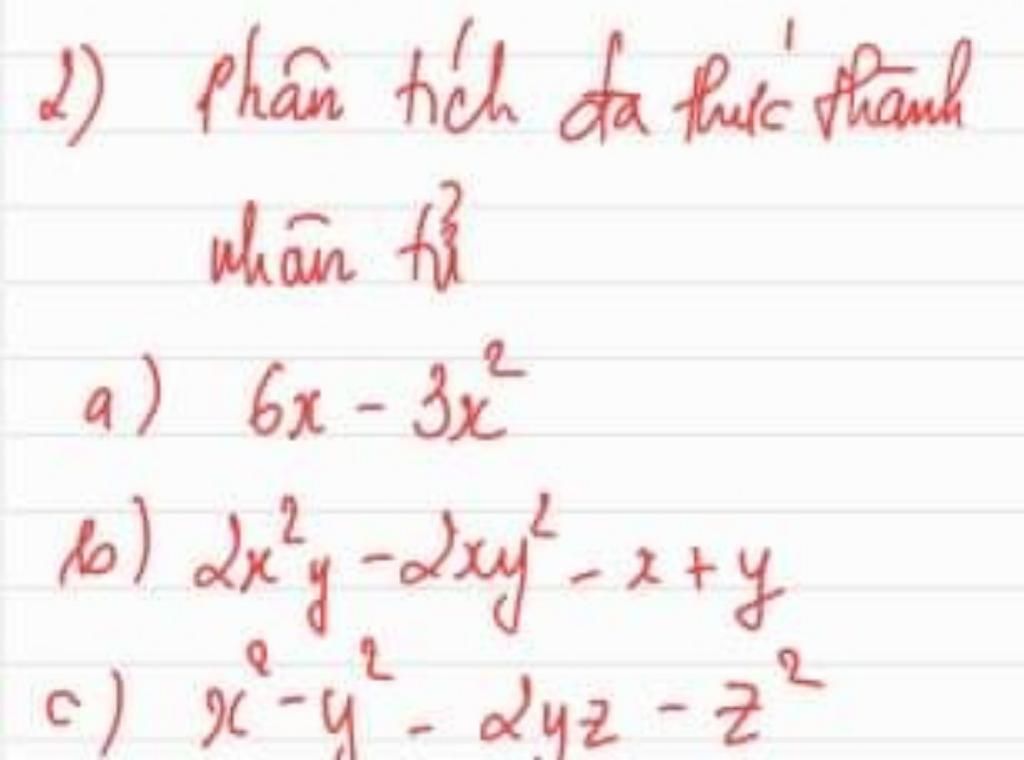 2) Phân tích đa thức thành
nhân tử
a) 6x - 3x²
b) 2x²y - 2xy² - x + y
c) x² - y² - 2yz - z²